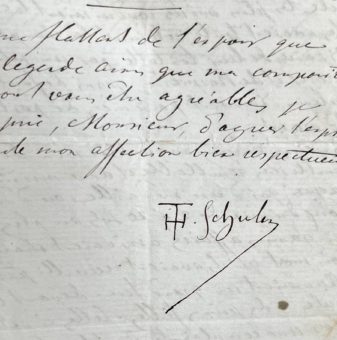 me flattant de l'espoir que
legende ainsi que ma composi
vont vous être agréables je
prie, Monsieur, d'agréer l'exp
de mon affection bien respectueu
TH. Schuler